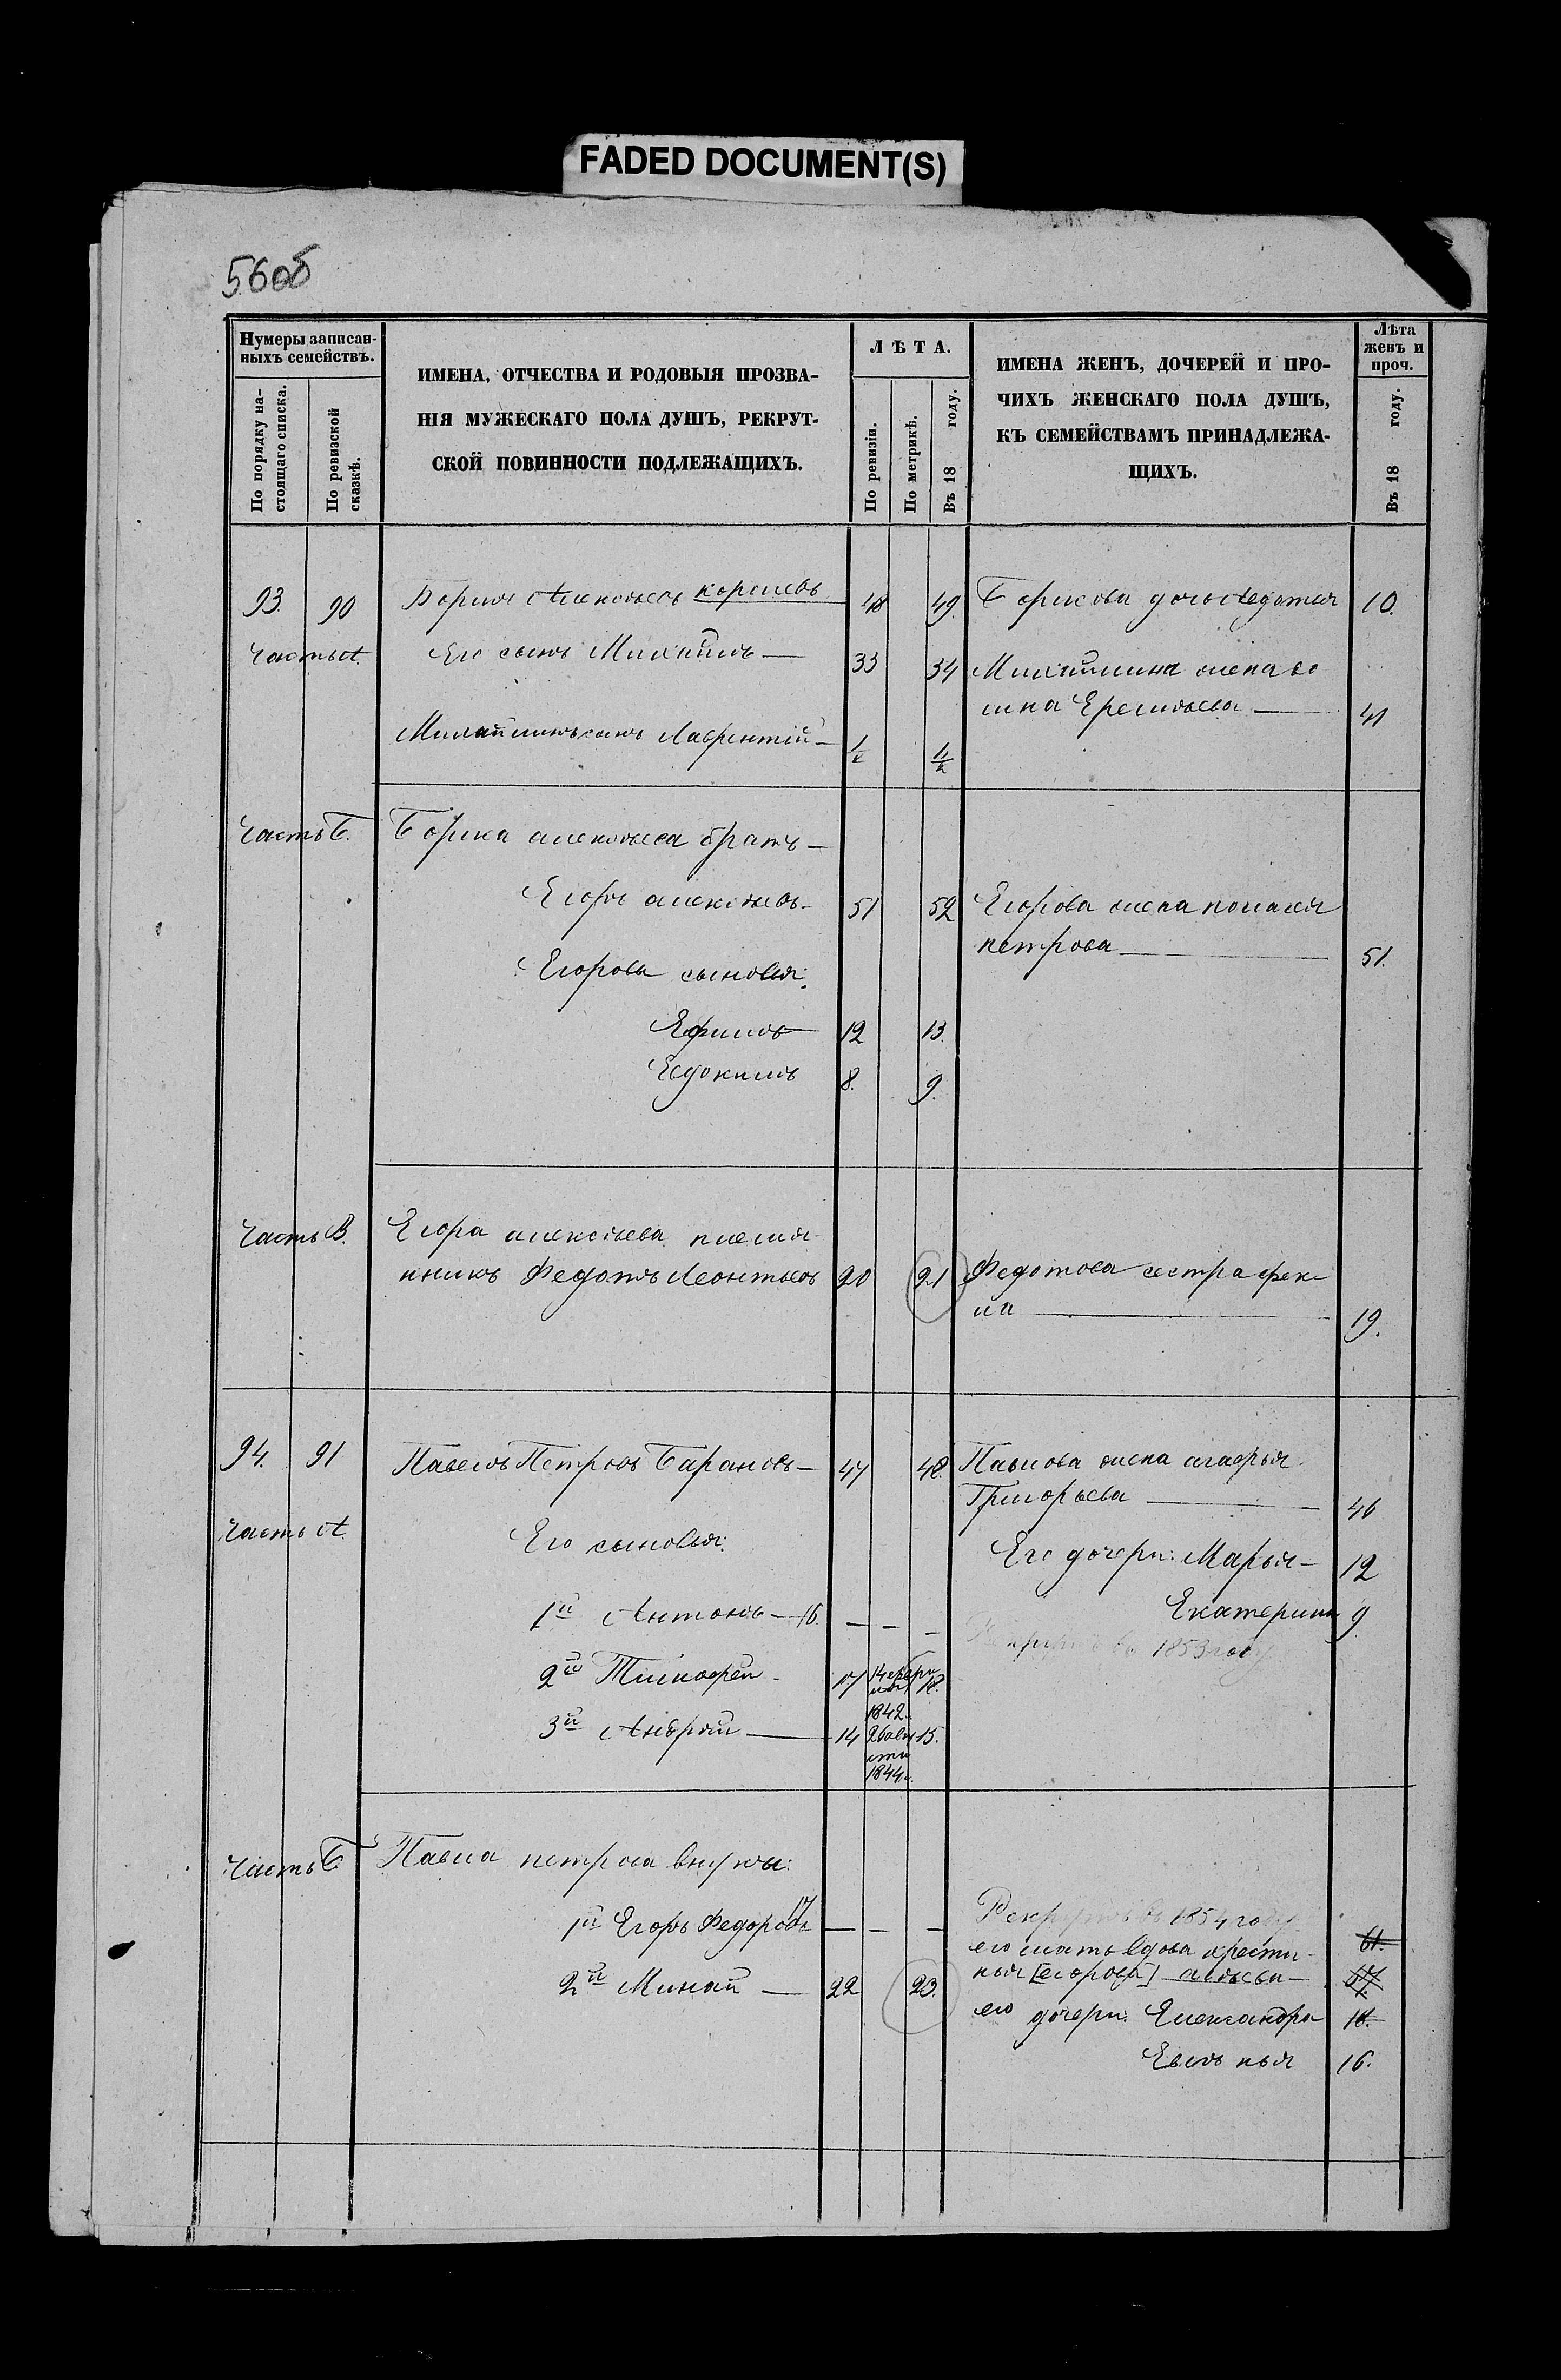 FADED DOCUMENT(S)
56об
Нумеры записан-
ныхъ семействъ.
По порядку на-
стоящаго списка.
По ревизской
сказкѣ.
ИМЕНА, ОТЧЕСТВА И РОДОВЫЯ ПРОЗВА-
НІЯ МУЖЕСКАГО ПОЛА ДУШЪ, РЕКРУТ-
СКОЙ ПОВИННОСТИ ПОДЛЕЖАЩИХЪ.
ЛѢТА.
По ревизіи.
По метрикѣ.
Въ 18 году.
ИМЕНА ЖЕНЪ, ДОЧЕРЕЙ И ПРО-
ЧИХЪ ЖЕНСКАГО ПОЛА ДУШЪ,
КЪ СЕМЕЙСТВАМЪ ПРИНАДЛЕЖА-
ЩИХЪ.
Лѣта
женъ и
проч.
Въ 18 году.
93. 90 Борисъ Алексѣевъ королевъ 48 49. Борисова дочь Авдотья 10.
Часть А. Его сынъ Михайлъ — 33 34 Михайлина жена До
мна Еремѣева — 41
Михайлинъ сынъ Лаврентій —
Часть Б. Бориса алексѣева братъ —
Егоръ алексѣевъ — 51 52 Егорова жена
петрова — 51.
Егоровы сыновья:
Ефимъ 12 13.
Евдокимъ 8. 9.
Часть В. Егора алексѣева племя
нникъ Федотъ Леонтьевъ 20 21 Федотова сестра Фек
ла — 19.
94. 91 Павелъ Петровъ Барановъ — 47 48. Павлова жена агафья
Григорьева — 46
Часть А. Его сыновья: Его дочери: Марья — 12
1й Антонъ — 16. — — — Екатерина 9
Рекрутъ въ 1853 году
2й Тимофей — 17 18.
1842
3й Андрей — 14 26 авгу 15.
ста
1844.
Часть Б Павла петрова внуки:
1й Егоръ Федоровъ 17 — — — Рекрутъ въ 1854 году
его мать вдова 61.
2й Минай — 22 23. [егорова]
его дочери: Александра 18.
16.